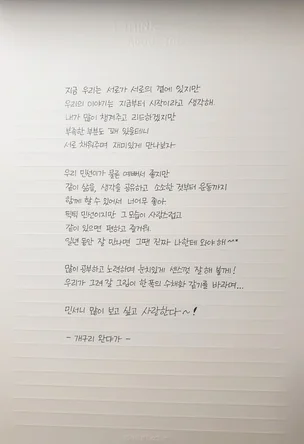 지금 우리는 서로가 서로의 곁에 있지만
우리의 이야기는 지금부터 시작이라고 생각해
내가 많이 챙겨주고 리드하겠지만
부족한 부분도 꽤 있을테니
서로 채워주며 재미있게 만나보자
우리 민선이가 물론 예뻐서 좋지만
같이 삶을, 생각을 공유하고 소소한 것부터 운동까지
함께 할 수 있어서 너어무 좋아
툭툭 민선이지만 그 모습이 사랑스럽고
같이 있으면 편하고 즐거워
일년 동안 잘 만나면 그땐 진짜 나한테 와야 해^^
많이 공부하고 노력하며 눈치있게 센스껏 잘 해 볼게!
우리가 그려 갈 그림이 한 폭의 수채화 같기를 바라며...
민서니 많이 보고 싶고 사랑한다~!
- 개구리 왔다가 -